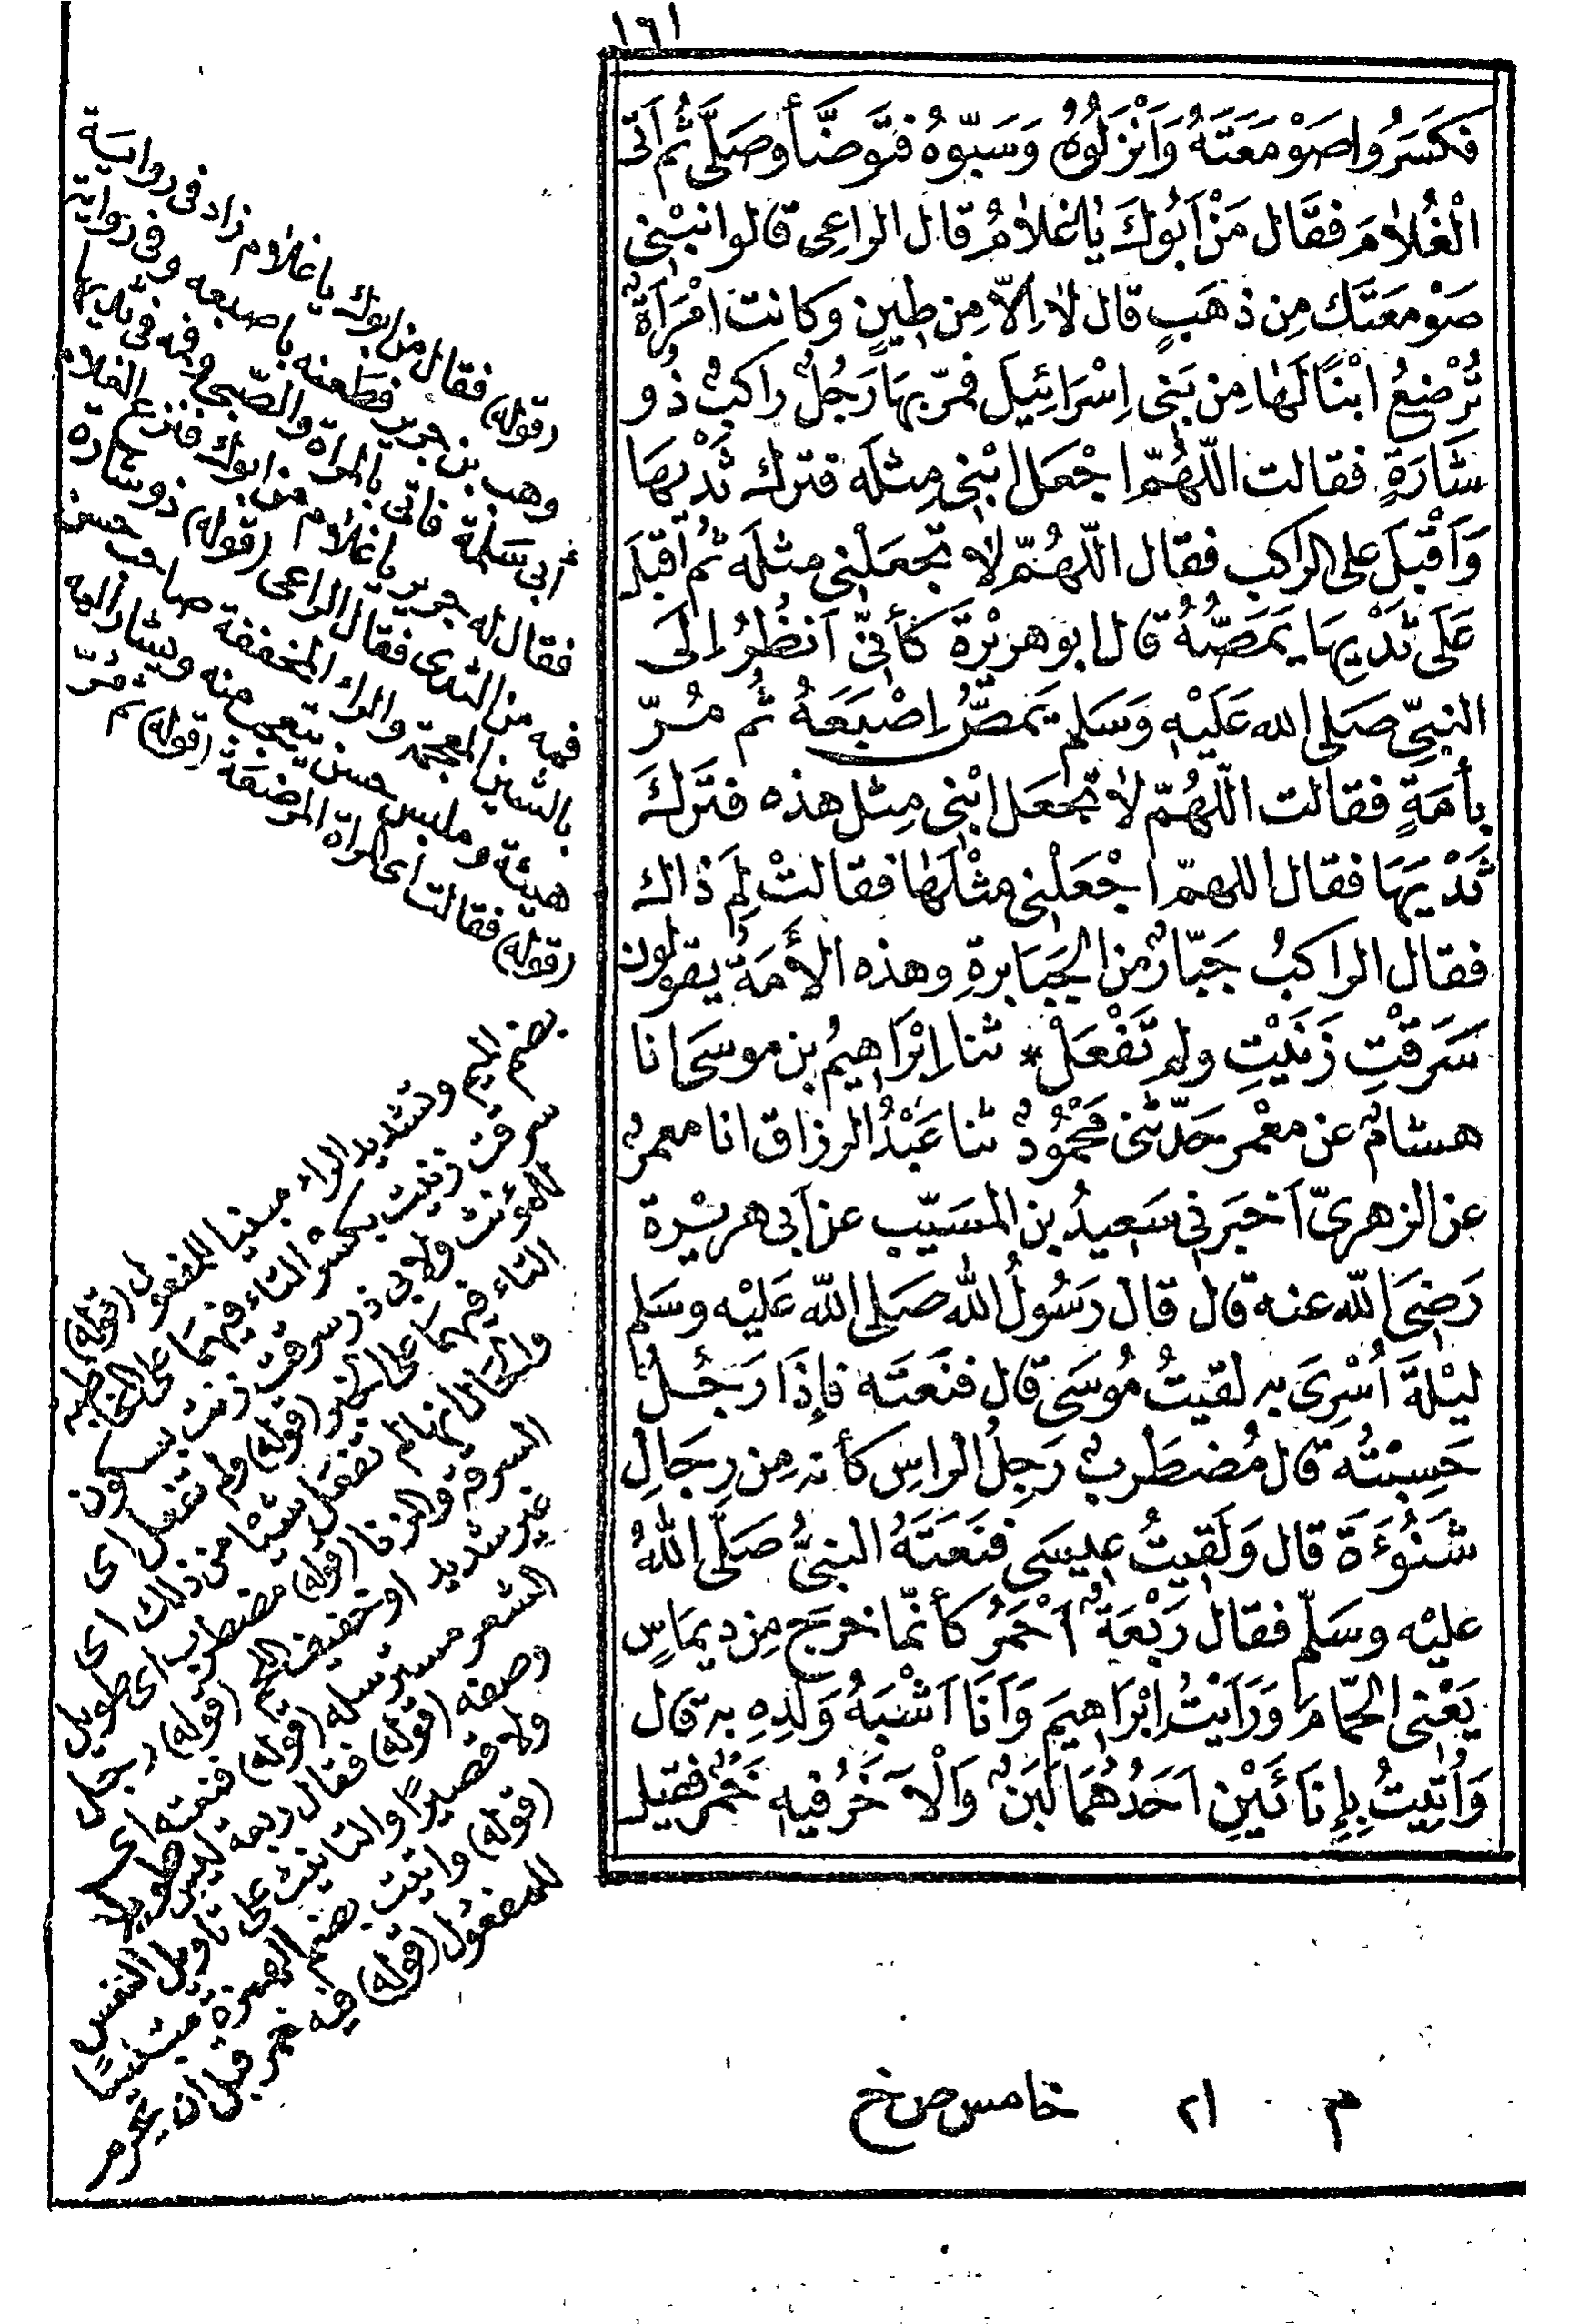 ١٦١
فَكَسَرُوا صَوْمَعَتَهُ وَاَنْزَلُوهُ وَسَبّوهُ فتَوَضَّأ وصَلَّى ثُم اَتى
الْغُلاَمَ فقَال مَنْ اَبُوكَ يَاغلامُ قال الراعِى قالوا نبْنى
صَوْمعَتَك مِن ذهَبٍ قال لا اِلاّ مِن طِينٍ وكانت امْرَأةٌ
تُرْضِعُ ابْنًا لَهَا مِن بَنى اِسْرَائِيلَ فمّر بهَا رَجُلٌ راكبٌ ذُو
شَارَةٍ فقالت اللّهُمّ اجْعَل ابْنِى مِثلَه فترك ثَدْيهَا
وَاَقْبلَ على الراكب فقال اللّهُمّ لا تَجعَلْنى مثلَه ثُم اَقبَلَ
عَلَى ثَدْيِهَا يَمَصُّهُ قال ابو هريْرَة كَأنّى اَنظُرُ اِلَى
النبِىّ صَلى الله عَلَيْهِ وَسَلم يَمَصُّ اِصْبَعَهُ ثُم مُرّ
بأمَةٍ فقالت اللّهُمّ لا تَجعَل ابْنى مِثل هذه فتَرَكَ
ثَدْيَهَا فقال اللهمّ اجْعَلْنى مثْلَهَا فقالتْ لِمَ ذاك
فقال الراكبُ جَبّارٌ من الجَبَابرةِ وهذه الأَمَةُ يقولون
سَرَقْتِ زَنَيْتِ ولم تَفْعَلْ * ثنا اِبْرَاهِيمُ بن موسَى انا
هشامٌ عن معْمر حَدّثنى مَحْمُودٌ ثنا عَبْدُ الرزاق انا معمرٌ
عن الزهرىّ اَخبَرنى سَعِيدُ بن المسَيّب عن اَبى هريْرة
رَضِىَ اللّه عنه قال قال رَسُولُ الله صَلى اللّه عَلَيْه وسَلم
ليْلَةَ اُسْرِىَ به لَقيتُ مُوسَى قال فنَعَتَه فإذَا رَجُلٌ
حَسِبْتُه قال مُضطَربٌ رَجِلُ الراسِ كأنه مِن رِجَالِ
شَنُوءَةَ قال وَلَقِيتُ عِيسَى فنَعَتَهُ النبىُّ صَلَّى اللهُ
عليْه وسَلّم فقال رَبْعَةٌ اَحْمَرُ كأنّما خرَج مِن ديمَاسٍ
يَعْنى الحَمّام وَرَاَيْتُ اِبْرَاهِيمَ وَاَنَا اَشْبَهُ وَلَدِهِ به قال
وَاُتِيتُ بِإِنَائَيْنِ اَحَدُهُمَا لَبَنٌ وَالْآخَرُ فيه خَمْرٌ فقيل
(قوله) فقال من ابوك ياغلام زاد فى رواية
وهب بن جرير فطعنه باصبعه وفى رواية
أبى سَلمة فاتى بالمراة والصّبى وفمه فى ثديها
فقال له جريج ياغلام من ابوك فنزع الغلام
فمه من الثدى فقال الراعى (قوله) ذو شارة
بالشين المعجمة والراء المخففة صاحب حسن
هيئة وملبس حسن يتعجب منه ويشار اليه
(قوله) فقالت اى المراة المرضعة (قوله) ثم مُرّ
بضم الميم وتشديد الراء مبنيا للمفعول (قوله)
سرقت زنيت بكسر التاء فيهما على المخاطبه
للمؤنث ولابى ذر سرقت زنت بسكون
التاء فيهما على الخبر (قوله) ولم تفعل اى
والحال انها لم تفعل شيئا من ذلك اى
السرقة والزنا (قوله) مضطرب اى طويل
غير شديد او خفيف اللحم (قوله) رجل
الشعر مسترسله (قوله) فنعته اى
وصفه (قوله) فقال ربعة ليس طويلا
ولا قصيرًا والتانيث على تاويل النفس
(قوله) واتيت بضم الهمزة مبنيا
للمفعُول (قوله) فيه خمر قبل ان تحرم
م ٢١ خامس ص خ